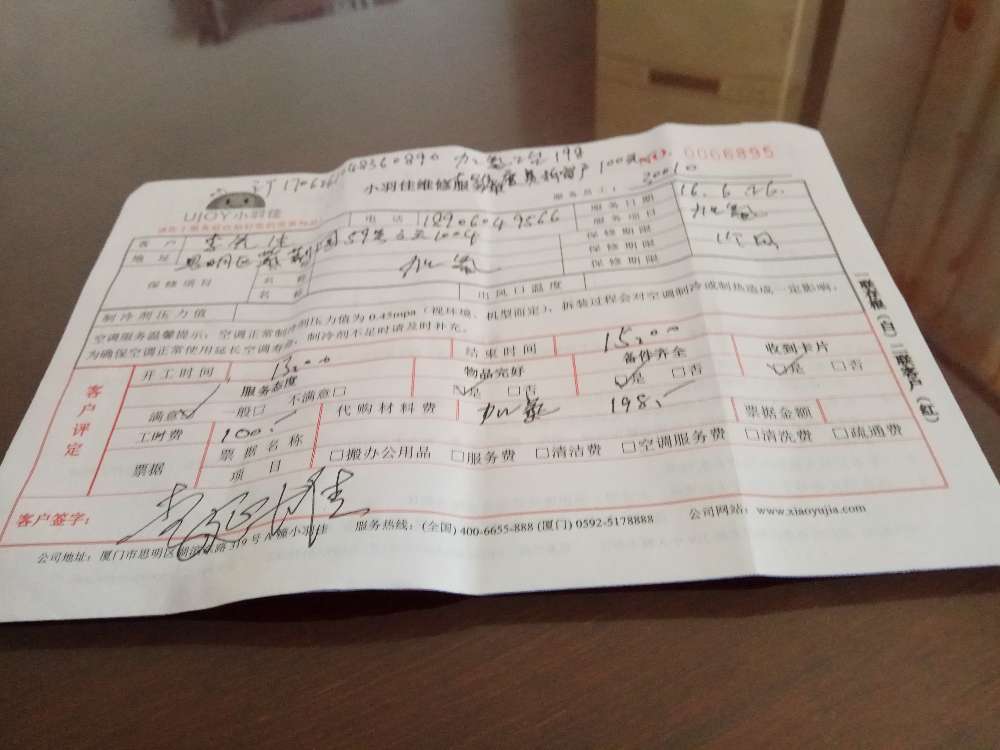 加氨 198
小羽佳维修服 100
0066895
UJOY小羽佳
服务员工: 20010
客户 电话 18906049566 服务日期 16.6.26.
地址 思明区 59 1004 服务项目 加氨
保修项目 名称 加氨 保修期限
名称 保修期限
制冷剂压力值 出风口温度
空调服务温馨提示:空调正常制冷剂压力值为0.45mpa(视环境、机型而定),拆装过程会对空调制冷或制热造成一定影响,
为确保空调正常使用延长空调寿命,制冷剂不足时请及时补充。
客户评定
开工时间 13:00 结束时间 15:00
服务态度 物品完好 备件齐全 收到卡片
满意☑ 一般□ 不满意□ ☑是 □否 ☑是 □否 ☑是 □否
工时费 100.- 代购材料费 加氨 198.- 票据金额
票据 票据名称
项目 □搬办公用品 □服务费 □清洁费 □空调服务费 □清洗费 □疏通费
客户签字:
公司地址:厦门市思明区湖滨 路319号A幢小羽佳 服务热线:(全国)400-6655-888 (厦门)0592-5178888 公司网站:www.xiaoyujia.com
一联存根(白) 二联客户(红)